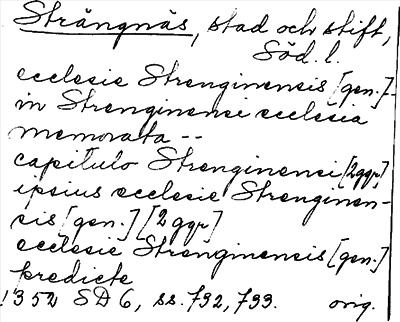 Strängnäs, stad och stift,
Söd. l.
ecclesie Strenginensis [gen.] -
in Strenginensi ecclesia
memorata --
capitulo Strenginensi [2 ggr]
ipsius ecclesie Strenginen-
sis [gen.] [2 ggr]
ecclesie Strenginensis [gen.]
predicte
1352 SD 6, ss. 732, 733. orig.